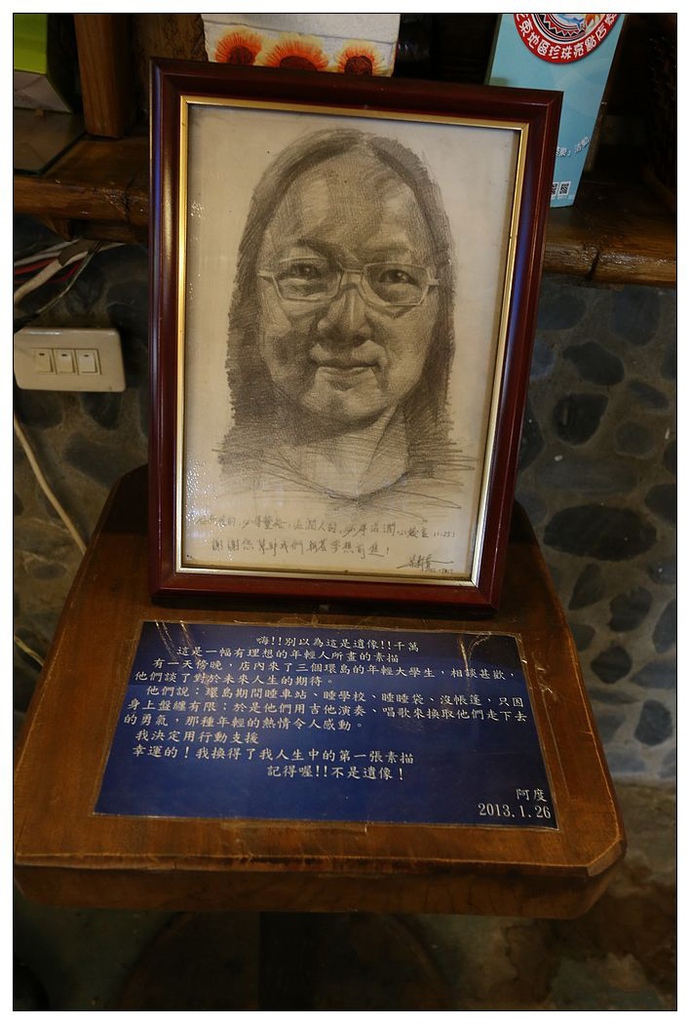 東地區珍珠
謝謝您幫助我們朝著夢想前進！
嗨!!別以為這是遺像!!千萬
這是一幅有理想的年輕人所畫的素描
有一天傍晚，店內來了三個環島的年輕大學生，相談甚歡，
他們談了對於未來人生的期待。
他們說：環島期間睡車站、睡學校、睡睡袋、沒帳篷，只因
身上盤纏有限；於是他們用吉他演奏、唱歌來換取他們走下去
的勇氣，那種年輕的熱情令人感動。
我決定用行動支援
幸運的！我換得了我人生中的第一張素描
記得喔!!不是遺像！
阿度
2013.1.26